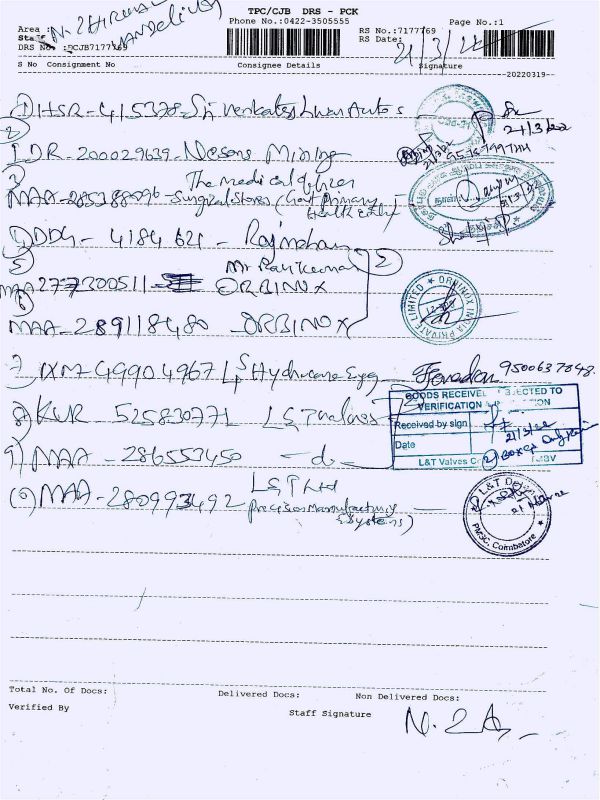 TPC/CJB DRS - PCK
Phone No.:0422-3505555 Page No.:1
Area :
RS No.:7177769
RS Date: 21/3/22
DRS No. :DCJB7177769
S No Consignment No Consignee Details Signature
20220319
1) HSR-415378- Sri Venkateshwar Autos
21/3/22
2
IDR-200029639-Nesons Mining
9515799744
3 The medical officer
MAA-285188096-Surgical Stores (Govt Primary
Health Centre)
4) DDG- 4184621- Rajmohan
5 Mr Ravikumar 2
MAA277300511- ORBINOX
6
MAA-289118480 ORBINOX
ORBINOX INDIA PRIVATE LIMITED
7) IXM-49904967 Hydrocare 9500637848.
GOODS RECEIVED SUBJECTED TO
VERIFICATION
8) KUR 525830771 L&T Valves
Received by sign
Date 21/3/22
9) MAA-286553450 -do-
L&T Valves
10) MAA-280993492 L&T Ltd
Precision Manufacturing
& Systems)
L&T
PMSC, Coimbatore
Total No. Of Docs: Delivered Docs: Non Delivered Docs:
Verified By Staff Signature